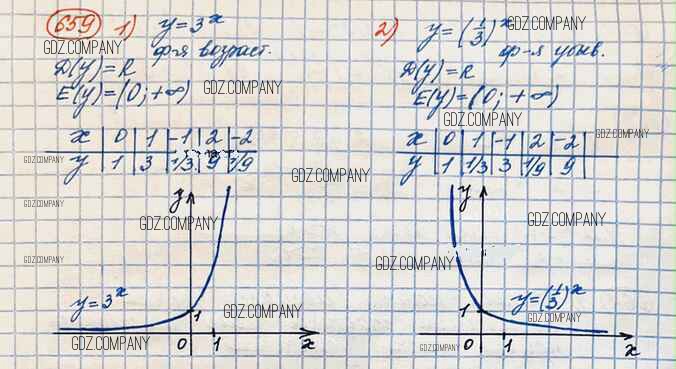 659 1) y = 3^x
GDZ.COMPANY
ф-я возраст.
D(y) = R
GDZ.COMPANY
E(y) = (0; +∞)
x | 0 | 1 | -1 | 2 | -2
y | 1 | 3 | 1/3 | 9 | 1/9
GDZ.COMPANY
GDZ.COMPANY
GDZ.COMPANY
y
GDZ.COMPANY
GDZ.COMPANY
y = 3^x
1
GDZ.COMPANY
GDZ.COMPANY
0 1 x
2) y = (1/3)^x
GDZ.COMPANY
ф-я убыв.
D(y) = R
E(y) = (0; +∞)
GDZ.COMPANY
x | 0 | 1 | -1 | 2 | -2
GDZ.COMPANY
y | 1 | 1/3 | 3 | 1/9 | 9
y
GDZ.COMPANY
GDZ.COMPANY
y = (1/3)^x
1
GDZ.COMPANY
GDZ.COMPANY
0 1 x